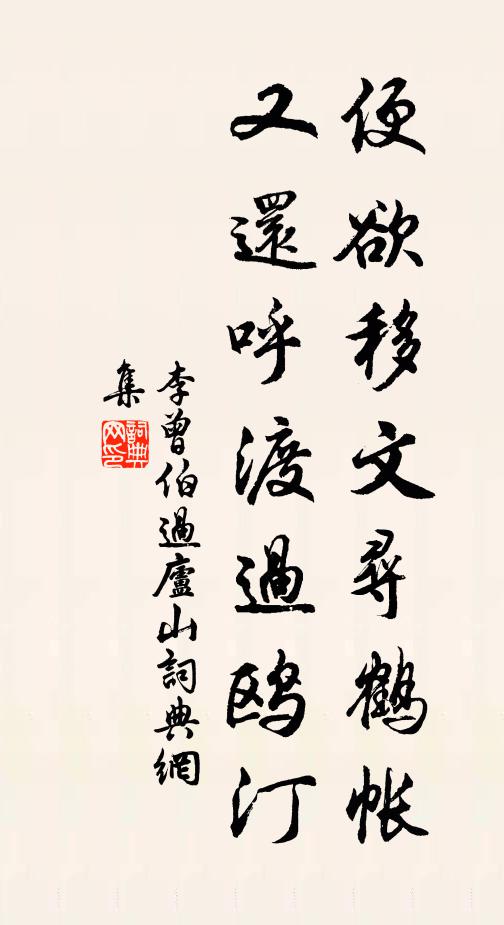 便欲移文尋鶴帳
又還呼渡過鷗汀
李曾伯過廬山詞典網
集
詞典
网印